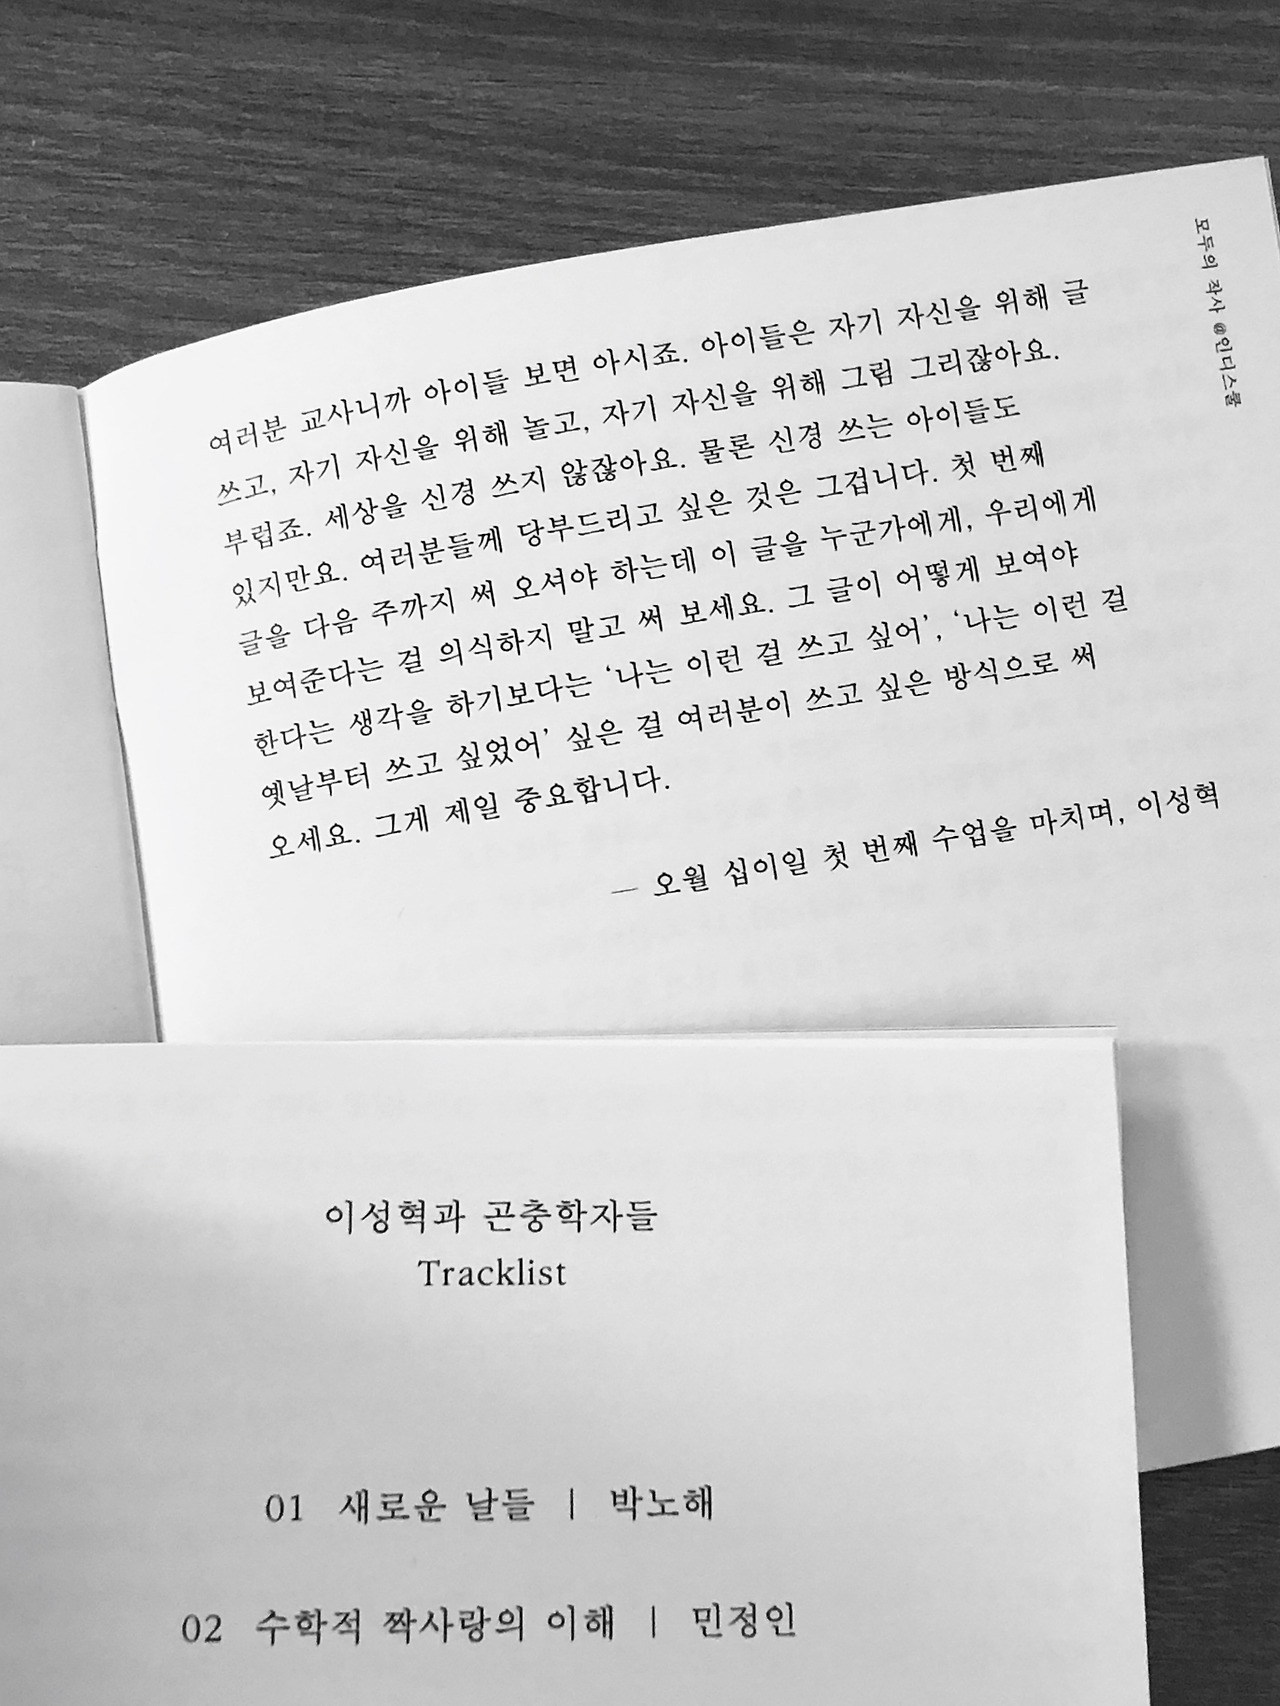 모두의 작사 @인디스쿨
여러분 교사니까 아이들 보면 아시죠. 아이들은 자기 자신을 위해 글
쓰고, 자기 자신을 위해 놀고, 자기 자신을 위해 그림 그리잖아요.
부럽죠. 세상을 신경 쓰지 않잖아요. 물론 신경 쓰는 아이들도
있지만요. 여러분들께 당부드리고 싶은 것은 그겁니다. 첫 번째
글을 다음 주까지 써 오셔야 하는데 이 글을 누군가에게, 우리에게
보여준다는 걸 의식하지 말고 써 보세요. 그 글이 어떻게 보여야
한다는 생각을 하기보다는 ‘나는 이런 걸 쓰고 싶어’, ‘나는 이런 걸
옛날부터 쓰고 싶었어’ 싶은 걸 여러분이 쓰고 싶은 방식으로 써
오세요. 그게 제일 중요합니다.
— 오월 십이일 첫 번째 수업을 마치며, 이성혁
이성혁과 곤충학자들
Tracklist
01 새로운 날들 | 박노해
02 수학적 짝사랑의 이해 | 민정인